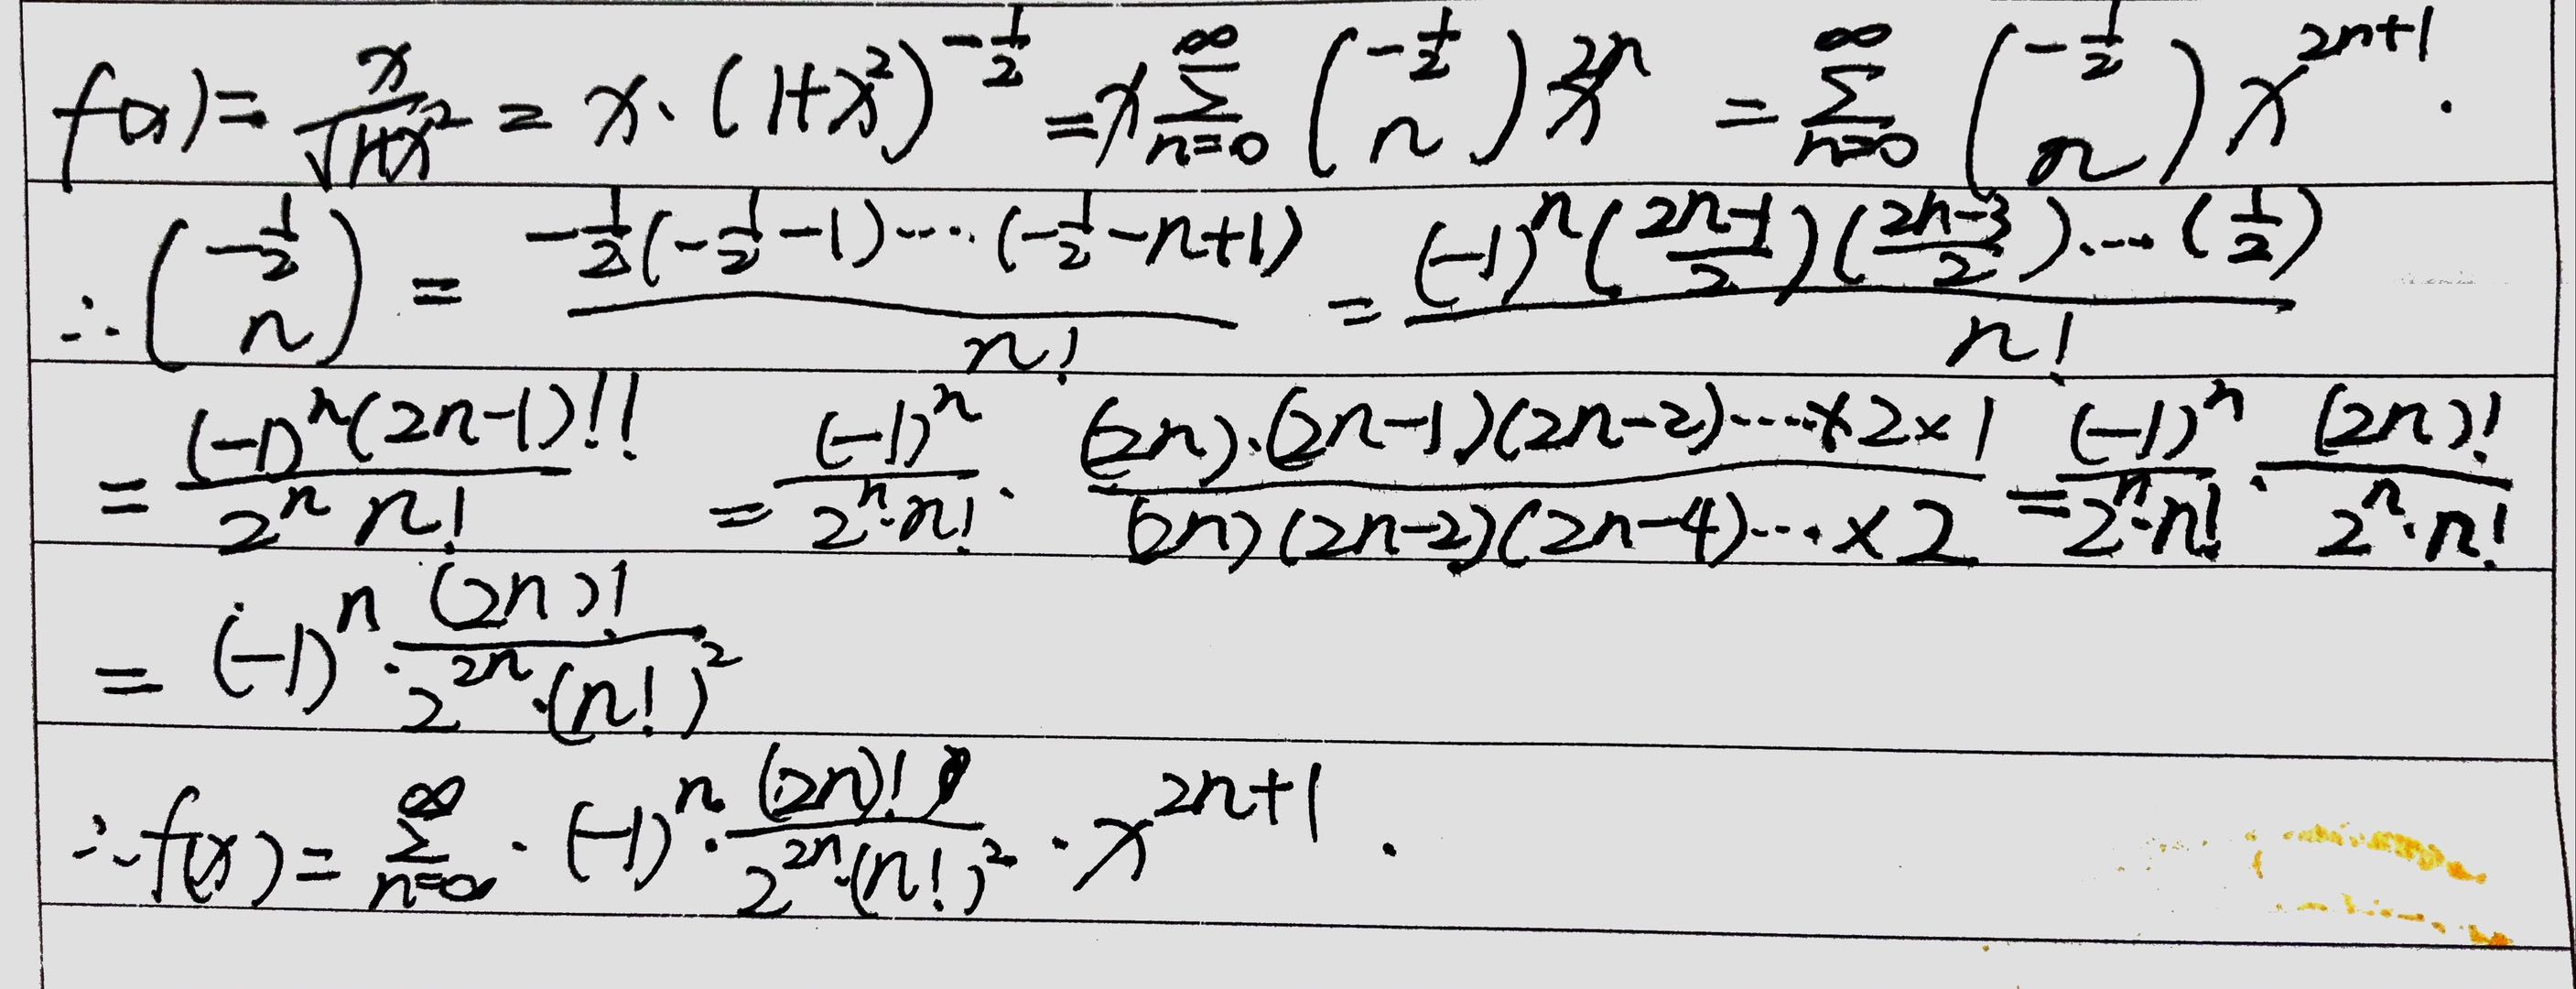 f(x) = x/√(1+x²) = x·(1+x²)^(-1/2) = x ∑_{n=0}^{∞} (-1/2 n) x^{2n} = ∑_{n=0}^{∞} (-1/2 n) x^{2n+1}.
∴ (-1/2 n) = (-1/2(-1/2-1)····(-1/2-n+1))/n! = ((-1)^n((2n-1)/2)((2n-3)/2)····(1/2))/n!
= ((-1)^n(2n-1)!!)/(2^n n!) = (-1)^n/(2^n·n!) · ((2n)·(2n-1)(2n-2)····×2×1)/((2n)(2n-2)(2n-4)···×2) = (-1)^n/(2^n·n!) · (2n)!/(2^n·n!)
= (-1)^n · (2n)!/(2^{2n}·(n!)²)
∴ f(x) = ∑_{n=0}^{∞} · (-1)^n · (2n)!/(2^{2n}·(n!)²) · x^{2n+1}.